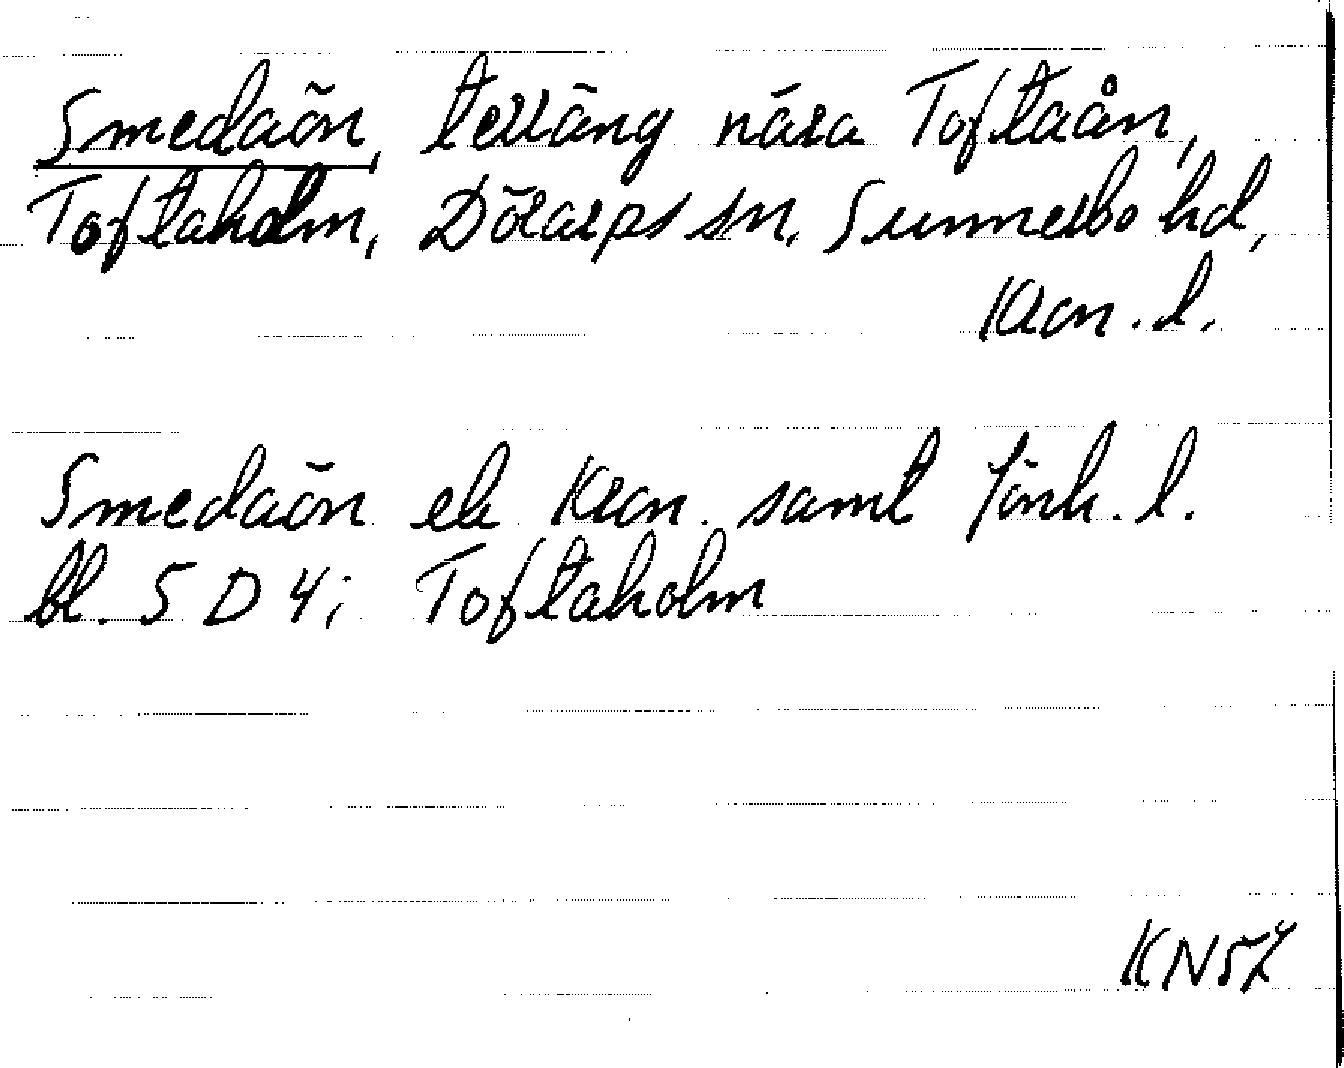 Smedaön, terräng nära Toftaån,
Toftaholm, Dörarps sn, Sunnerbo hd,
Kron. l.
Smedaön ek Kron. samt Jönk. l.
bl. 5 D 4i Toftaholm
KN57